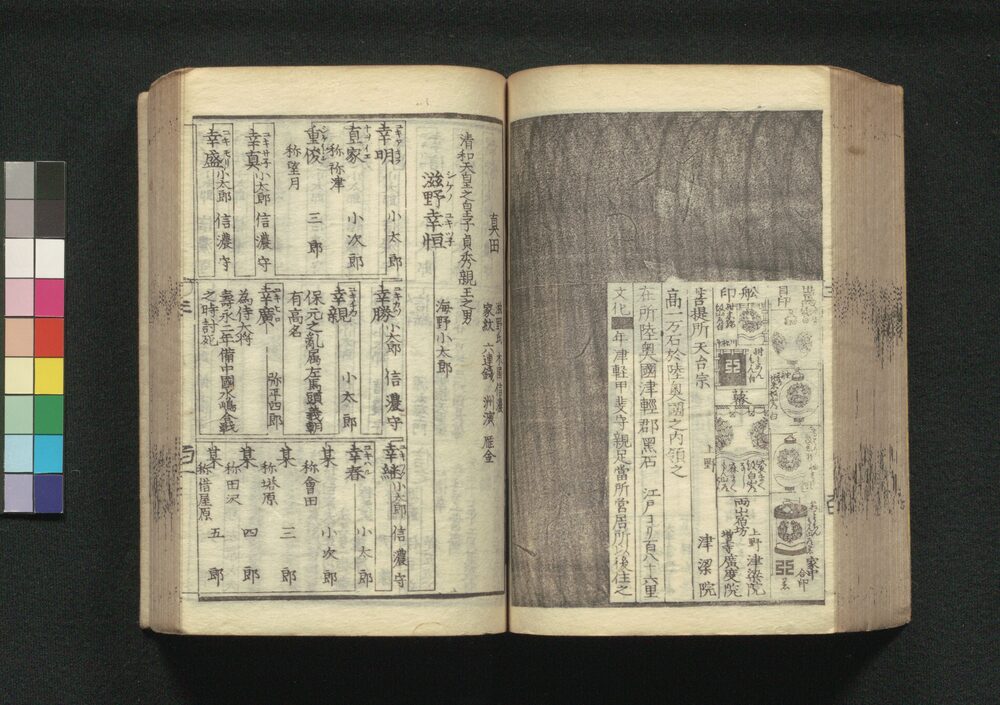 舩
印
幕
菩提所 天台宗 上野 津梁院
両山宿坊 上野 津梁院
増上寺 廣度院
家中
合印
高一万石於陸奥國之内領之
在所陸奥國津軽郡黒石 江戸ヨリ百八十六里
文化 年津軽甲斐守親足當所営居所以後住之
真田
滋野氏 本国信濃
家紋 六連銭 洲濱 雁金
清和天皇之皇子貞秀親王之男
滋野幸恒 海野小太郎
シゲノ ユキツネ
幸明 小太郎
直家 小次郎
称祢津
重俊 三郎
称望月
幸真 小太郎 信濃守
幸盛 小太郎 信濃守
幸勝 小太郎 信濃守
幸親 小太郎
保元之亂属左馬頭義朝
有高名
幸廣 弥平四郎
為侍大将
壽永二年備中國水嶋合戦
之時討死
幸継 小太郎 信濃守
幸春 小太郎
某 小次郎
称會田
某 三郎
称塔原
某 四郎
称田沢
某 五郎
称借屋原